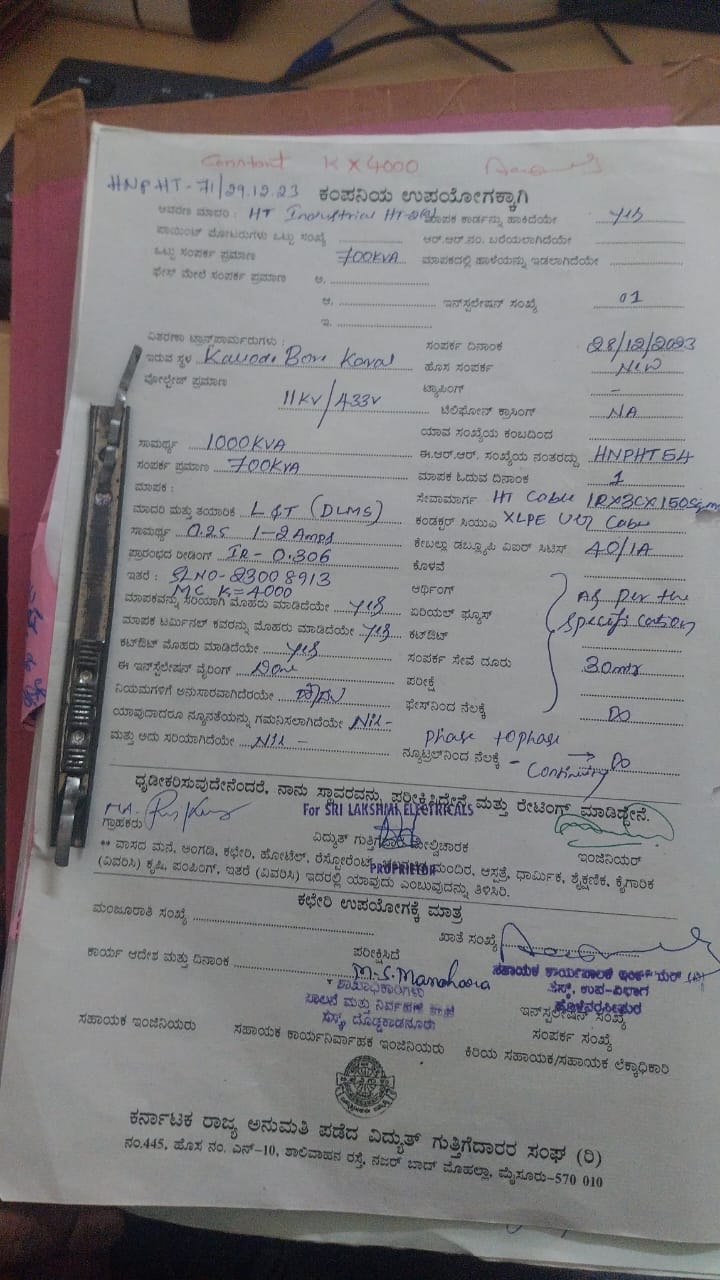 Constant K x 4000
HNPHT-71/29.12.23 ಕಂಪನಿಯ ಉಪಯೋಗಕ್ಕಾಗಿ
ಆವರಣ ಮಾದರಿ : HT Industrial HT- ಮಾಪಕ ಕಾರ್ಡನ್ನು ಹಾಕಿದೆಯೇ yes
ಪಾಯಿಂಟ್ ಮೋಟರುಗಳು ಒಟ್ಟು ಸಂಖ್ಯೆ ಆರ್.ಆರ್.ನಂ. ಬರೆಯಲಾಗಿದೆಯೇ
ಒಟ್ಟು ಸಂಪರ್ಕ ಪ್ರಮಾಣ 700KVA ಮಾಪಕದಲ್ಲಿ ಹಾಳೆಯನ್ನು ಇಡಲಾಗಿದೆಯೇ
ಫೇಸ್ ಮೇಲೆ ಸಂಪರ್ಕ ಪ್ರಮಾಣ ಅ.
ಆ. ಇನ್‌ಸ್ಟಲೇಷನ್ ಸಂಖ್ಯೆ 01
ಇ.
ವಿತರಣಾ ಟ್ರಾನ್ಸ್‌ಫಾರ್ಮರುಗಳು : ಸಂಪರ್ಕ ದಿನಾಂಕ 28/12/2023
ಇರುವ ಸ್ಥಳ Bore Kaval ಹೊಸ ಸಂಪರ್ಕ New
ವೋಲ್ಟೇಜ್ ಪ್ರಮಾಣ 11KV/433V ಟ್ಯಾಪಿಂಗ್ -
ಟೆಲಿಫೋನ್ ಕ್ರಾಸಿಂಗ್ NA
ಯಾವ ಸಂಖ್ಯೆಯ ಕಂಬದಿಂದ
ಸಾಮರ್ಥ್ಯ 1000KVA ಈ.ಆರ್.ಆರ್. ಸಂಖ್ಯೆಯ ನಂತರದ್ದು HNPHT54
ಸಂಪರ್ಕ ಪ್ರಮಾಣ 700KVA ಮಾಪಕ ಓದುವ ದಿನಾಂಕ 1
ಮಾಪಕ : ಸೇವಾಮಾರ್ಗ HT Cable 1RX3CX150Sqmm
ಮಾದರಿ ಮತ್ತು ತಯಾರಿಕೆ L&T (DLMS) ಕಂಡಕ್ಟರ್ ಸಿಯುಎ XLPE UG Cable
ಸಾಮರ್ಥ್ಯ 0.2S 1-2Amps ಕೇಬಲ್ಲು ಡಬ್ಲ್ಯೂಪಿ ವಿಐಆರ್ ಸಿಟಿಸ್ 40/1A
ಪ್ರಾರಂಭದ ರೀಡಿಂಗ್ IR- 0.306 ಕೊಳವೆ
ಇತರೆ : SLNO-23008913 ಅರ್ಥಿಂಗ್ As per the
MC K=4000
ಮಾಪಕವನ್ನು ಸರಿಯಾಗಿ ಮೊಹರು ಮಾಡಿದೆಯೇ yes ಏರಿಯಲ್ ಫ್ಯೂಸ್ specification
ಮಾಪಕ ಟರ್ಮಿನಲ್ ಕವರನ್ನು ಮೊಹರು ಮಾಡಿದೆಯೇ yes ಕಟ್‌ಔಟ್
ಕಟ್‌ಔಟ್ ಮೊಹರು ಮಾಡಿದೆಯೇ yes ಸಂಪರ್ಕ ಸೇವೆ ದೂರು 30mtr
ಈ ಇನ್‌ಸ್ಟಲೇಷನ್ ವೈರಿಂಗ್ Done ಪರೀಕ್ಷೆ
ನಿಯಮಗಳಿಗೆ ಅನುಸಾರವಾಗಿದೆಯೇ ಹೌದು ಫೇಸ್‌ನಿಂದ ನೆಲಕ್ಕೆ ∞
ಯಾವುದಾದರೂ ನ್ಯೂನತೆಯನ್ನು ಗಮನಿಸಲಾಗಿದೆಯೇ Nil- phase to phase
ಮತ್ತು ಅದು ಸರಿಯಾಗಿದೆಯೇ Nil - ನ್ಯೂಟ್ರಲ್‌ನಿಂದ ನೆಲಕ್ಕೆ - Continuity → ∞
ಧೃಡೀಕರಿಸುವುದೇನೆಂದರೆ, ನಾನು ಸ್ಥಾವರವನ್ನು ಪರೀಕ್ಷಿಸಿದ್ದೇನೆ ಮತ್ತು ರೇಟಿಂಗ್ ಮಾಡಿದ್ದೇನೆ.
For SRI LAKSHMI ELECTRICALS
ಗ್ರಾಹಕರು ವಿದ್ಯುತ್ ಗುತ್ತಿಗೆದಾರ ಮೇಲ್ವಿಚಾರಕ ಇಂಜಿನಿಯರ್
** ವಾಸದ ಮನೆ, ಅಂಗಡಿ, ಕಛೇರಿ, ಹೋಟೆಲ್, ರೆಸ್ಟೋರೆಂಟ್, ಮಂದಿರ, ಆಸ್ಪತ್ರೆ, ಧಾರ್ಮಿಕ, ಶೈಕ್ಷಣಿಕ, ಕೈಗಾರಿಕ
PROPRIETOR
(ವಿವರಿಸಿ) ಕೃಷಿ, ಪಂಪಿಂಗ್, ಇತರೆ (ವಿವರಿಸಿ) ಇದರಲ್ಲಿ ಯಾವುದು ಎಂಬುವುದನ್ನು ತಿಳಿಸಿರಿ.
ಕಛೇರಿ ಉಪಯೋಗಕ್ಕೆ ಮಾತ್ರ
ಮಂಜೂರಾತಿ ಸಂಖ್ಯೆ ಖಾತೆ ಸಂಖ್ಯೆ
ಕಾರ್ಯ ಆದೇಶ ಮತ್ತು ದಿನಾಂಕ ಪರೀಕ್ಷಿಸಿದೆ
M.S. Manohara ಸಹಾಯಕ ಕಾರ್ಯಪಾಲಕ ಇಂಜಿನಿಯರ್ (ವಿ)
ಶಾಖಾಧಿಕಾರಿಗಳು ಸೆಸ್ಕ್, ಉಪ-ವಿಭಾಗ
ಪಾಲನೆ ಮತ್ತು ನಿರ್ವಹಣೆ ಶಾಖೆ ಹೊಳೆನರಸೀಪುರ
ಸೆಸ್ಕ್, ದೊಡ್ಡಕಾಡನೂರು ಇನ್‌ಸ್ಟಲೇಷನ್ ಸಂಖ್ಯೆ
ಸಂಪರ್ಕ ಸಂಖ್ಯೆ
ಸಹಾಯಕ ಇಂಜಿನಿಯರು ಸಹಾಯಕ ಕಾರ್ಯನಿರ್ವಾಹಕ ಇಂಜಿನಿಯರು ಕಿರಿಯ ಸಹಾಯಕ/ಸಹಾಯಕ ಲೆಕ್ಕಾಧಿಕಾರಿ
ಕರ್ನಾಟಕ ರಾಜ್ಯ ಅನುಮತಿ ಪಡೆದ ವಿದ್ಯುತ್ ಗುತ್ತಿಗೆದಾರರ ಸಂಘ (ರಿ)
ನಂ.445, ಹೊಸ ನಂ. ಎನ್-10, ಶಾಲಿವಾಹನ ರಸ್ತೆ, ನಜರ್ ಬಾದ್ ಮೊಹಲ್ಲಾ, ಮೈಸೂರು-570 010